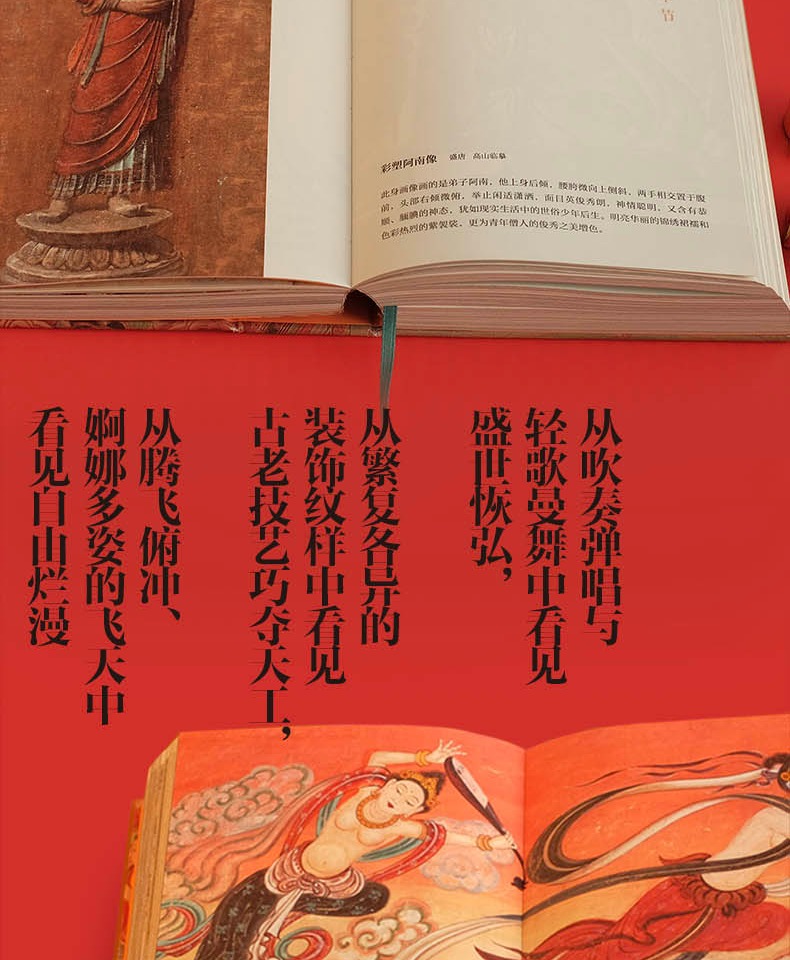 节
彩塑阿南像 盛唐 高山临摹
此身画像画的是弟子阿南，他上身后倾，腰胯微向上侧斜，两手相交置于腹
前，头部右倾微俯，举止闲适潇洒，面目英俊秀朗，神情聪明，又含有恭
顺、腼腆的神态，犹如现实生活中的世俗少年后生。明亮华丽的锦绣裙襦和
色彩热烈的紫袈裟，更为青年僧人的俊秀之美增色。
从吹奏弹唱与
轻歌曼舞中看见
盛世恢弘，
从繁复各异的
装饰纹样中看见
古老技艺巧夺天工，
从腾飞俯冲、
婀娜多姿的飞天中
看见自由烂漫